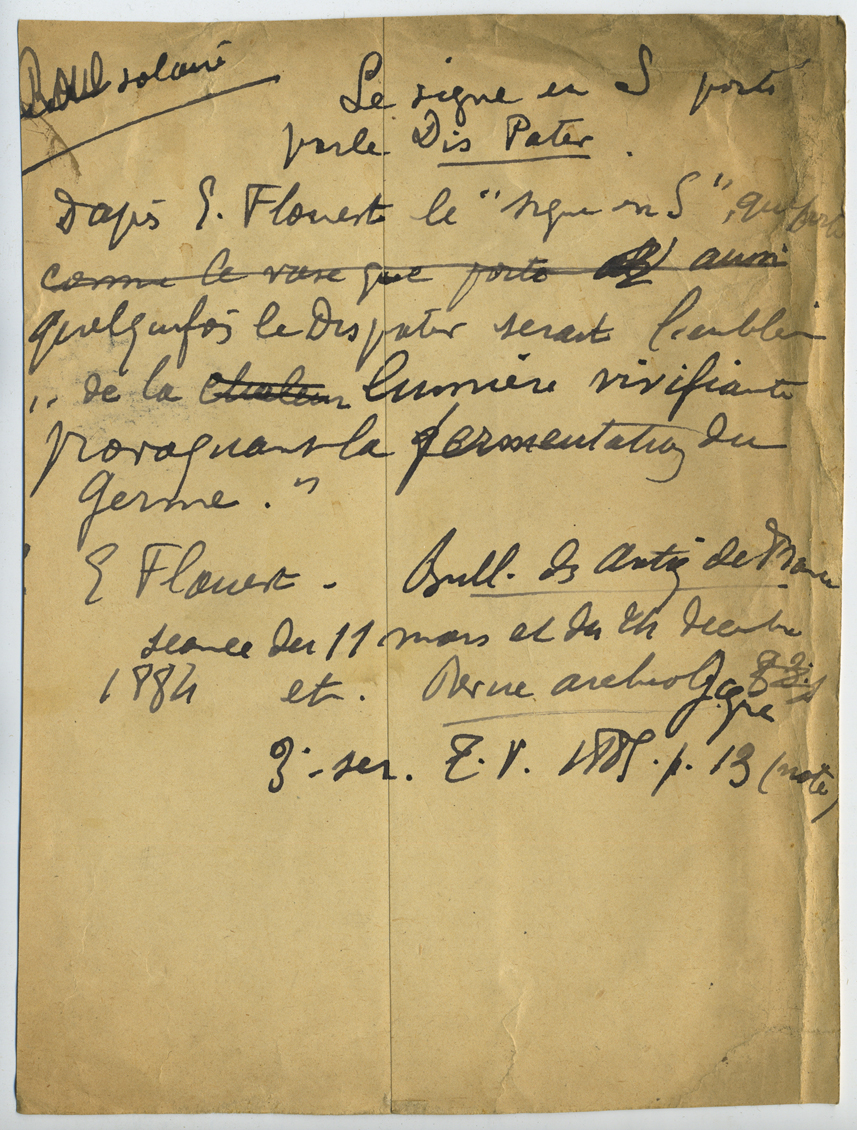 solaire
Le signe en S porté
par le Dis Pater.
D'après E. Flouest le "signe en S", qui porte
comme le vase que porte aussi
quelquefois le Dispater serait l'emblème
" de la chaleur lumière vivifiante
provoquant la fermentation du
Germe."
E Flouest - Bull. des Antiq de France
séance du 11 mars et du 24 decembre
1884 et. Revue archeologique
3e ser. T. V. 1885. p. 13 (note)